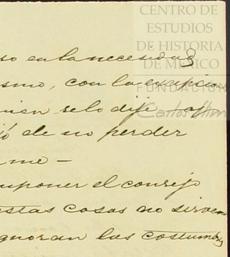 CENTRO DE
ESTUDIOS
DE HISTORIA
DE MÉXICO
FUNDACIÓN
so en la necesidad
smo, con la
quien se lo dije
de no perder
me —
mponer el consejo
estas cosas no sirven
gnoran las costumbres